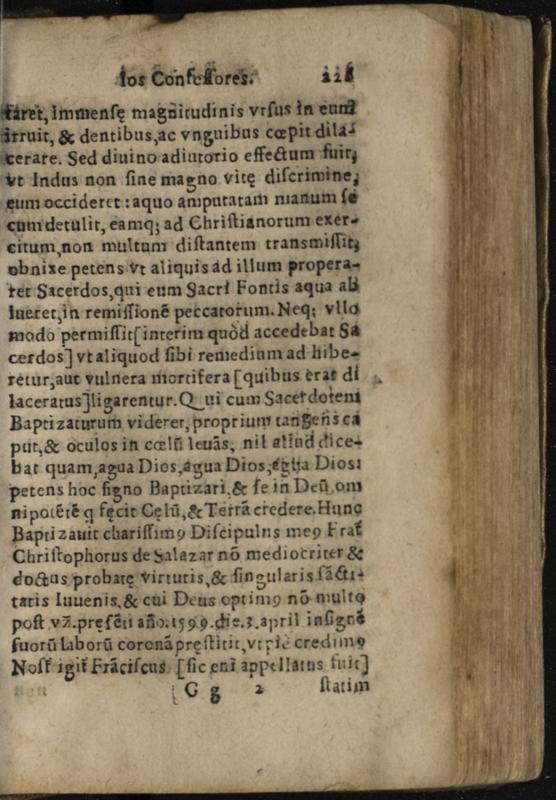 los Confessores. 228
taret, immensę magnitudinis vrsus in eum
irruit, & dentibus, ac vnguibus cœpit dila-
cerare. Sed diuino adiutorio effectum fuit,
vt Indus non sine magno vitę discrimine,
eum occideret: a quo amputatam manum se
cum detulit, eamq; ad Christianorum exer-
citum, non multum distantem transmissit,
obnixe petens vt aliquis ad illum propera-
ret Sacerdos, qui eum Sacri Fontis aqua ab
lueret, in remissionē peccatorum. Neq; vllo
modo permissit [interim quòd accedebat Sa
cerdos] vt aliquod sibi remedium ad hibe-
retur, aut vulnera mortifera [quibus erat di
laceratus] ligarentur. Qui cum Sacerdotem
Baptizaturum videret, proprium tangens ca
put, & oculos in cœlū leuās, nil aliud dice-
bat quam, agua Dios, agua Dios, agua Dios:
petens hoc signo Baptizari, & se in Deū, om
nipotētē q fęcit Cęlū, & Terrā credere. Hunc
Baptizauit charissimꝰ Discipulus meꝰ Frat̄
Christophorus de Salazar nō mediocriter &
doctus probatę virtutis, & singularis sācti-
tatis Iuuenis, & cui Deus optimꝰ nō multo
post vz̄. pręsēti año. 1599. die. 3. april insignē
suorū laborū coronā pręstitit, vt piè credimꝰ
Nost̄ igit̄ Frāciscus [sic eni appellatus fuit]
G g 2 statim